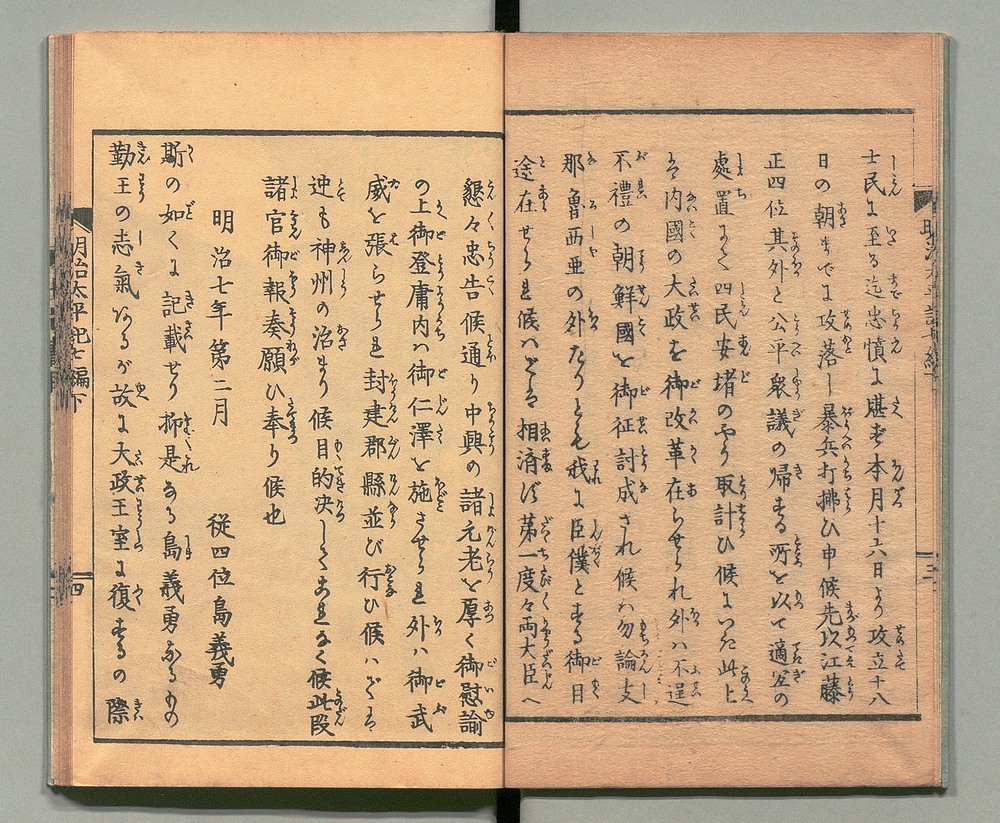 士民に至る迄忠憤に堪ず本月十六日より攻立十八
日の朝までに攻落し暴兵打拂ひ申候先以江藤
正四位其外と公平衆議の帰する所を以て適宜の
處置にて四民安堵のやう取計ひ候
内國の大政を御改革在らせられ外ハ不逞
不禮の朝鮮國を御征討成され候ハ勿論支
那魯西亜の外たりとも我に臣僕とする御目
途在せられ候ハでハ相濟ず第一度々両大臣へ
懇々忠告候通り中興の諸元老を厚く御慰諭
の上御登庸内ハ御仁澤を施させられ外ハ御武
威を張らせられ封建郡縣並び行ひ候ハでハ
迚も神州の治まり候目的決してこれなく候此段
諸官御報奏願ひ奉り候也
明治七年第二月
従四位島義勇
斯の如くに記載せり抑是なる島義勇なるもの
勤王の志氣なるが故に大政王室に復するの際
明治太平記七編下
四